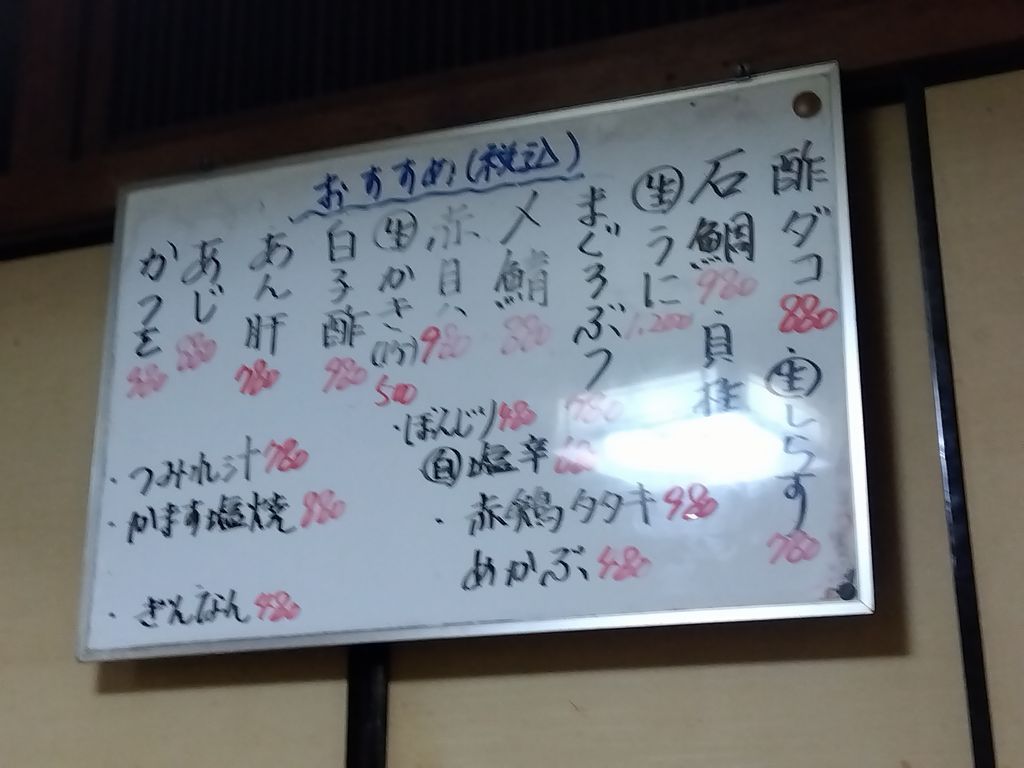 おすすめ(税込)
酢ダコ 880
・生しらす 780
石鯛 980
・貝柱
生うに 1,200
まぐろぶつ 780
〆鯖 880
赤貝 980
生かき(1ケ) 500
白子酢 980
あん肝 780
あじ 880
かつを 980
・ぼんじり 480
自塩辛
・赤鶏タタキ 980
めかぶ 480
・つみれ汁 780
・かます塩焼 980
・ぎんなん 480